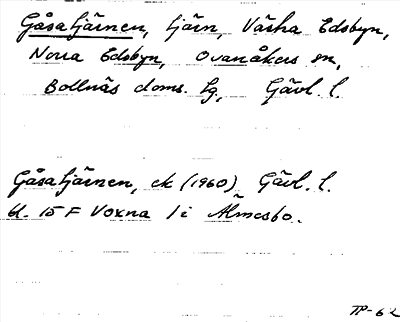 Gåsatjärnen, tjärn, Västra Edsbyn,
Norra Edsbyn, Ovanåkers sn,
Bollnäs doms. lg, Gävl. l.
Gåsatjärnen, ek (1960) Gävl. l.
bl. 15 F Voxna 1 i Älmesbo.
TP-62